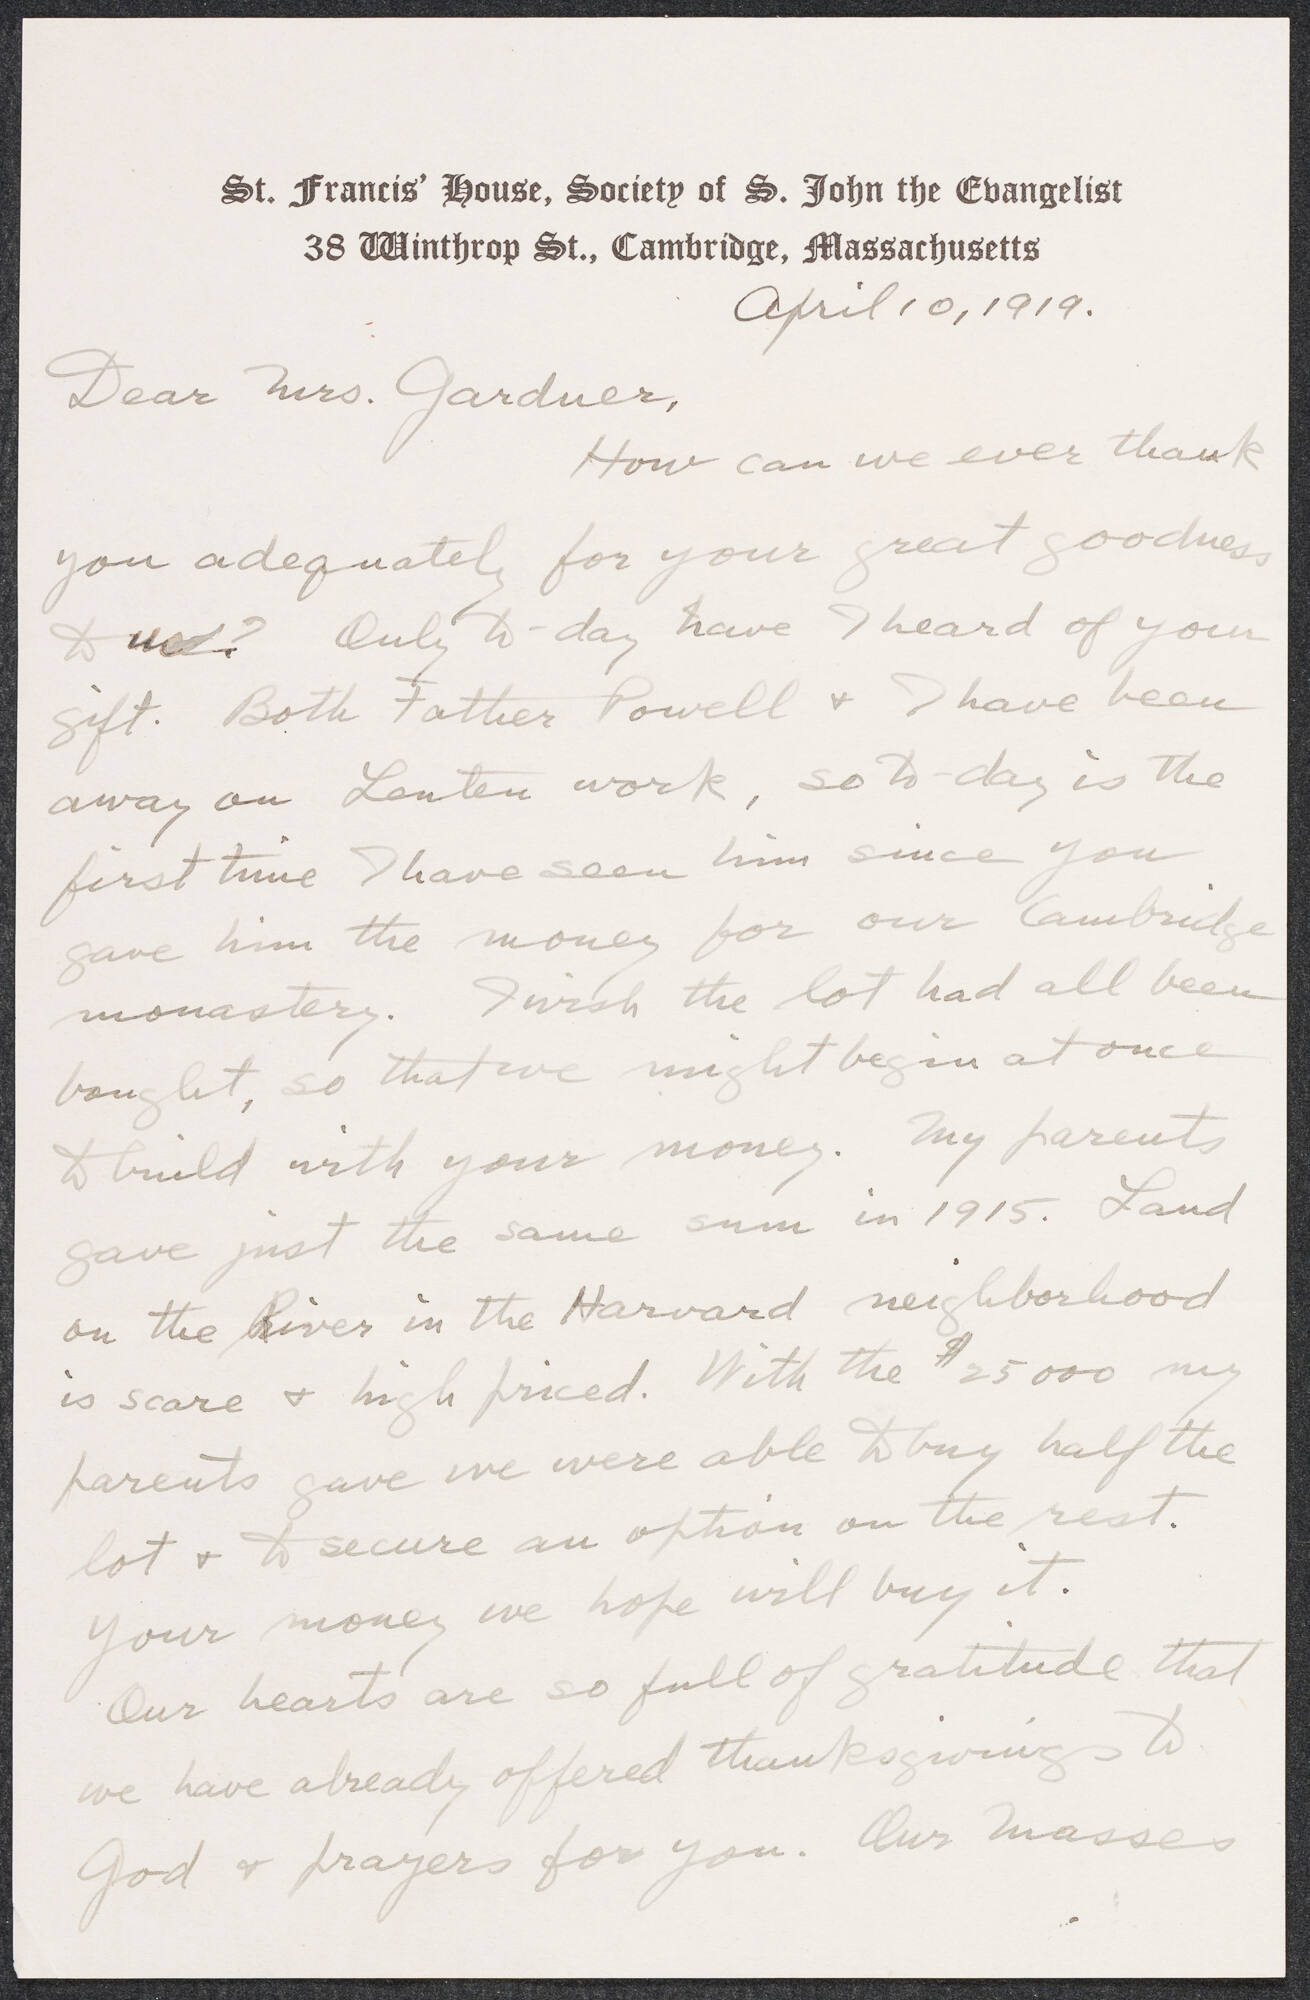 St. Francis' House, Society of S. John the Evangelist
38 Winthrop St., Cambridge, Massachusetts
April 10, 1919.
Dear Mrs. Gardner,
How can we ever thank
you adequately for your great goodness
to us? Only to-day have I heard of your
gift. Both Father Powell & I have been
away on Lenten work, so to-day is the
first time I have seen him since you
gave him the money for our Cambridge
monastery. I wish the lot had all been
bought, so that we might begin at once
to build with your money. My parents
gave just the same sum in 1915. Land
on the River in the Harvard neighborhood
is scare & high priced. With the $25000 my
parents gave we were able to buy half the
lot & to secure an option on the rest.
Your money we hope will buy it.
Our hearts are so full of gratitude that
we have already offered thanksgivings to
God & prayers for you. Our Masses